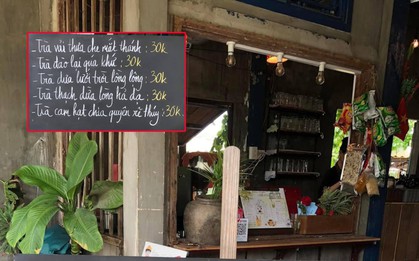 - Trà vải thưa che mắt thánh : 30k
- Trà đào lại quá khứ : 30k
- Trà dưa lưới trời lồng lộng : 30k
- Trà thạch dừa lông ka da : 30k
- Trà cam hạt chia quyền rẽ thúy : 30k